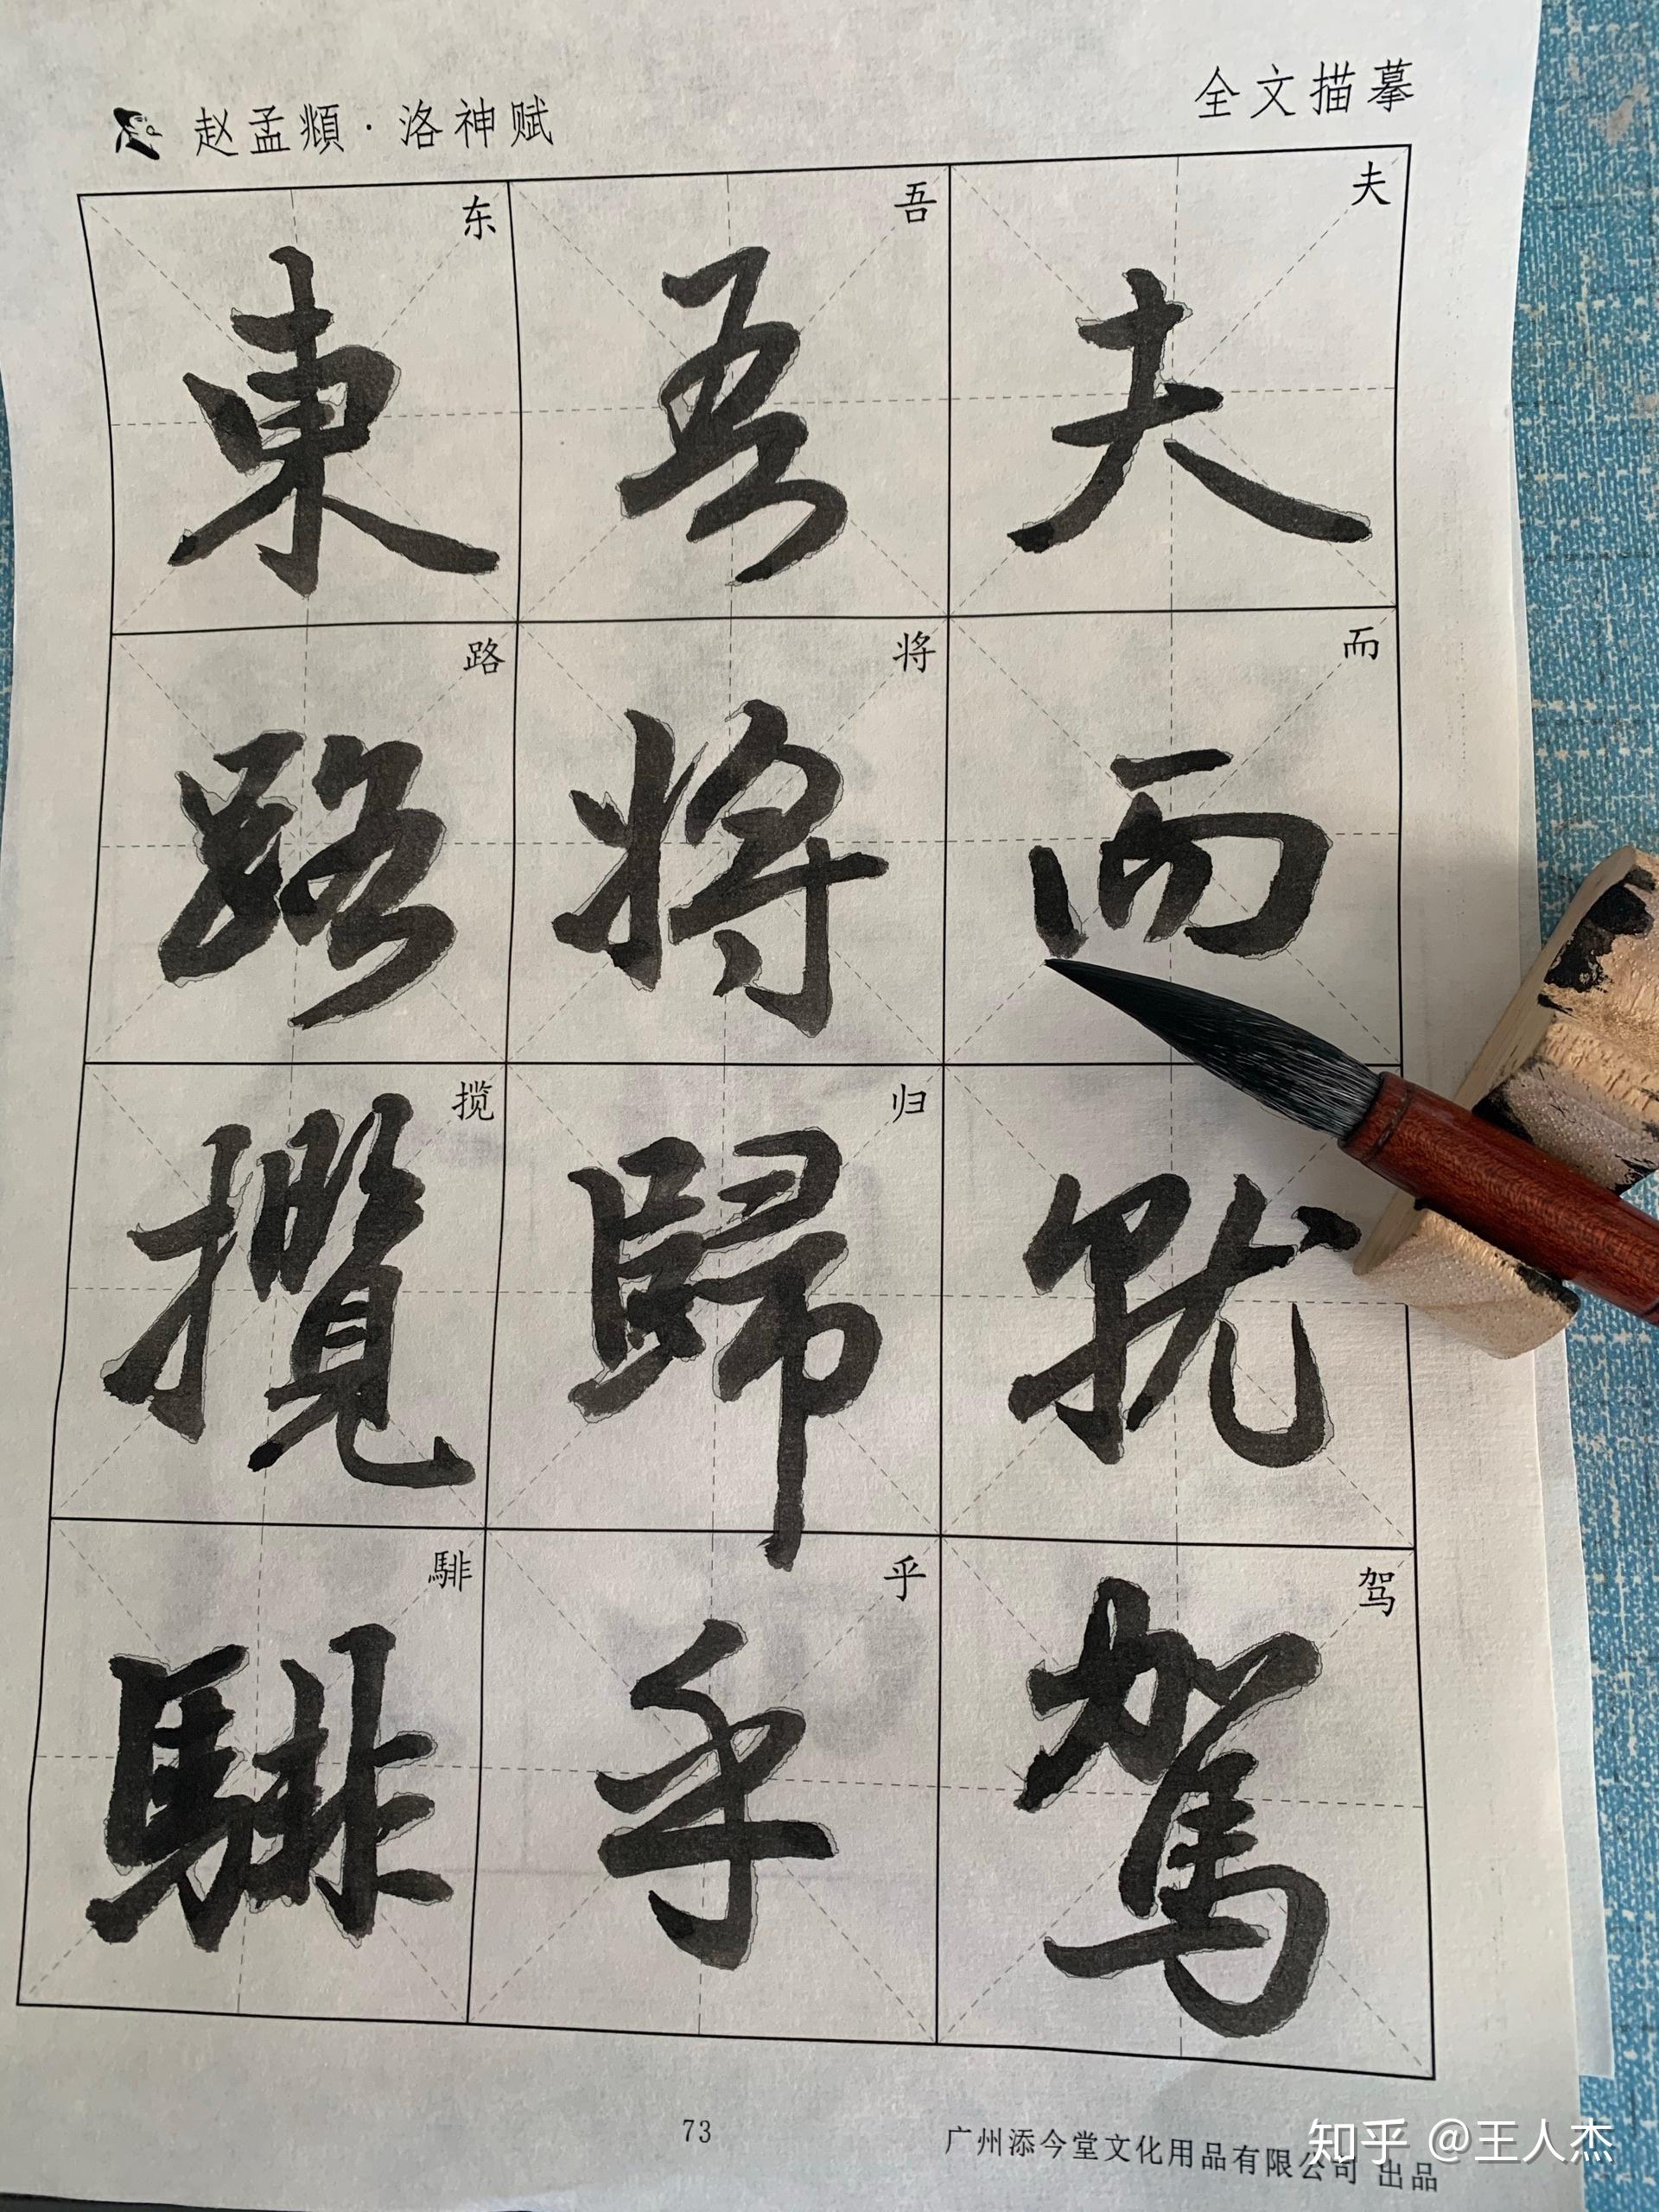 赵孟頫·洛神赋
全文描摹
夫而就駕
夫而驾
吾將歸乎
吾将归乎
東路攬騑
东路揽騑
73
广州添今堂文化用品有限公司 出品
知乎 @王人杰